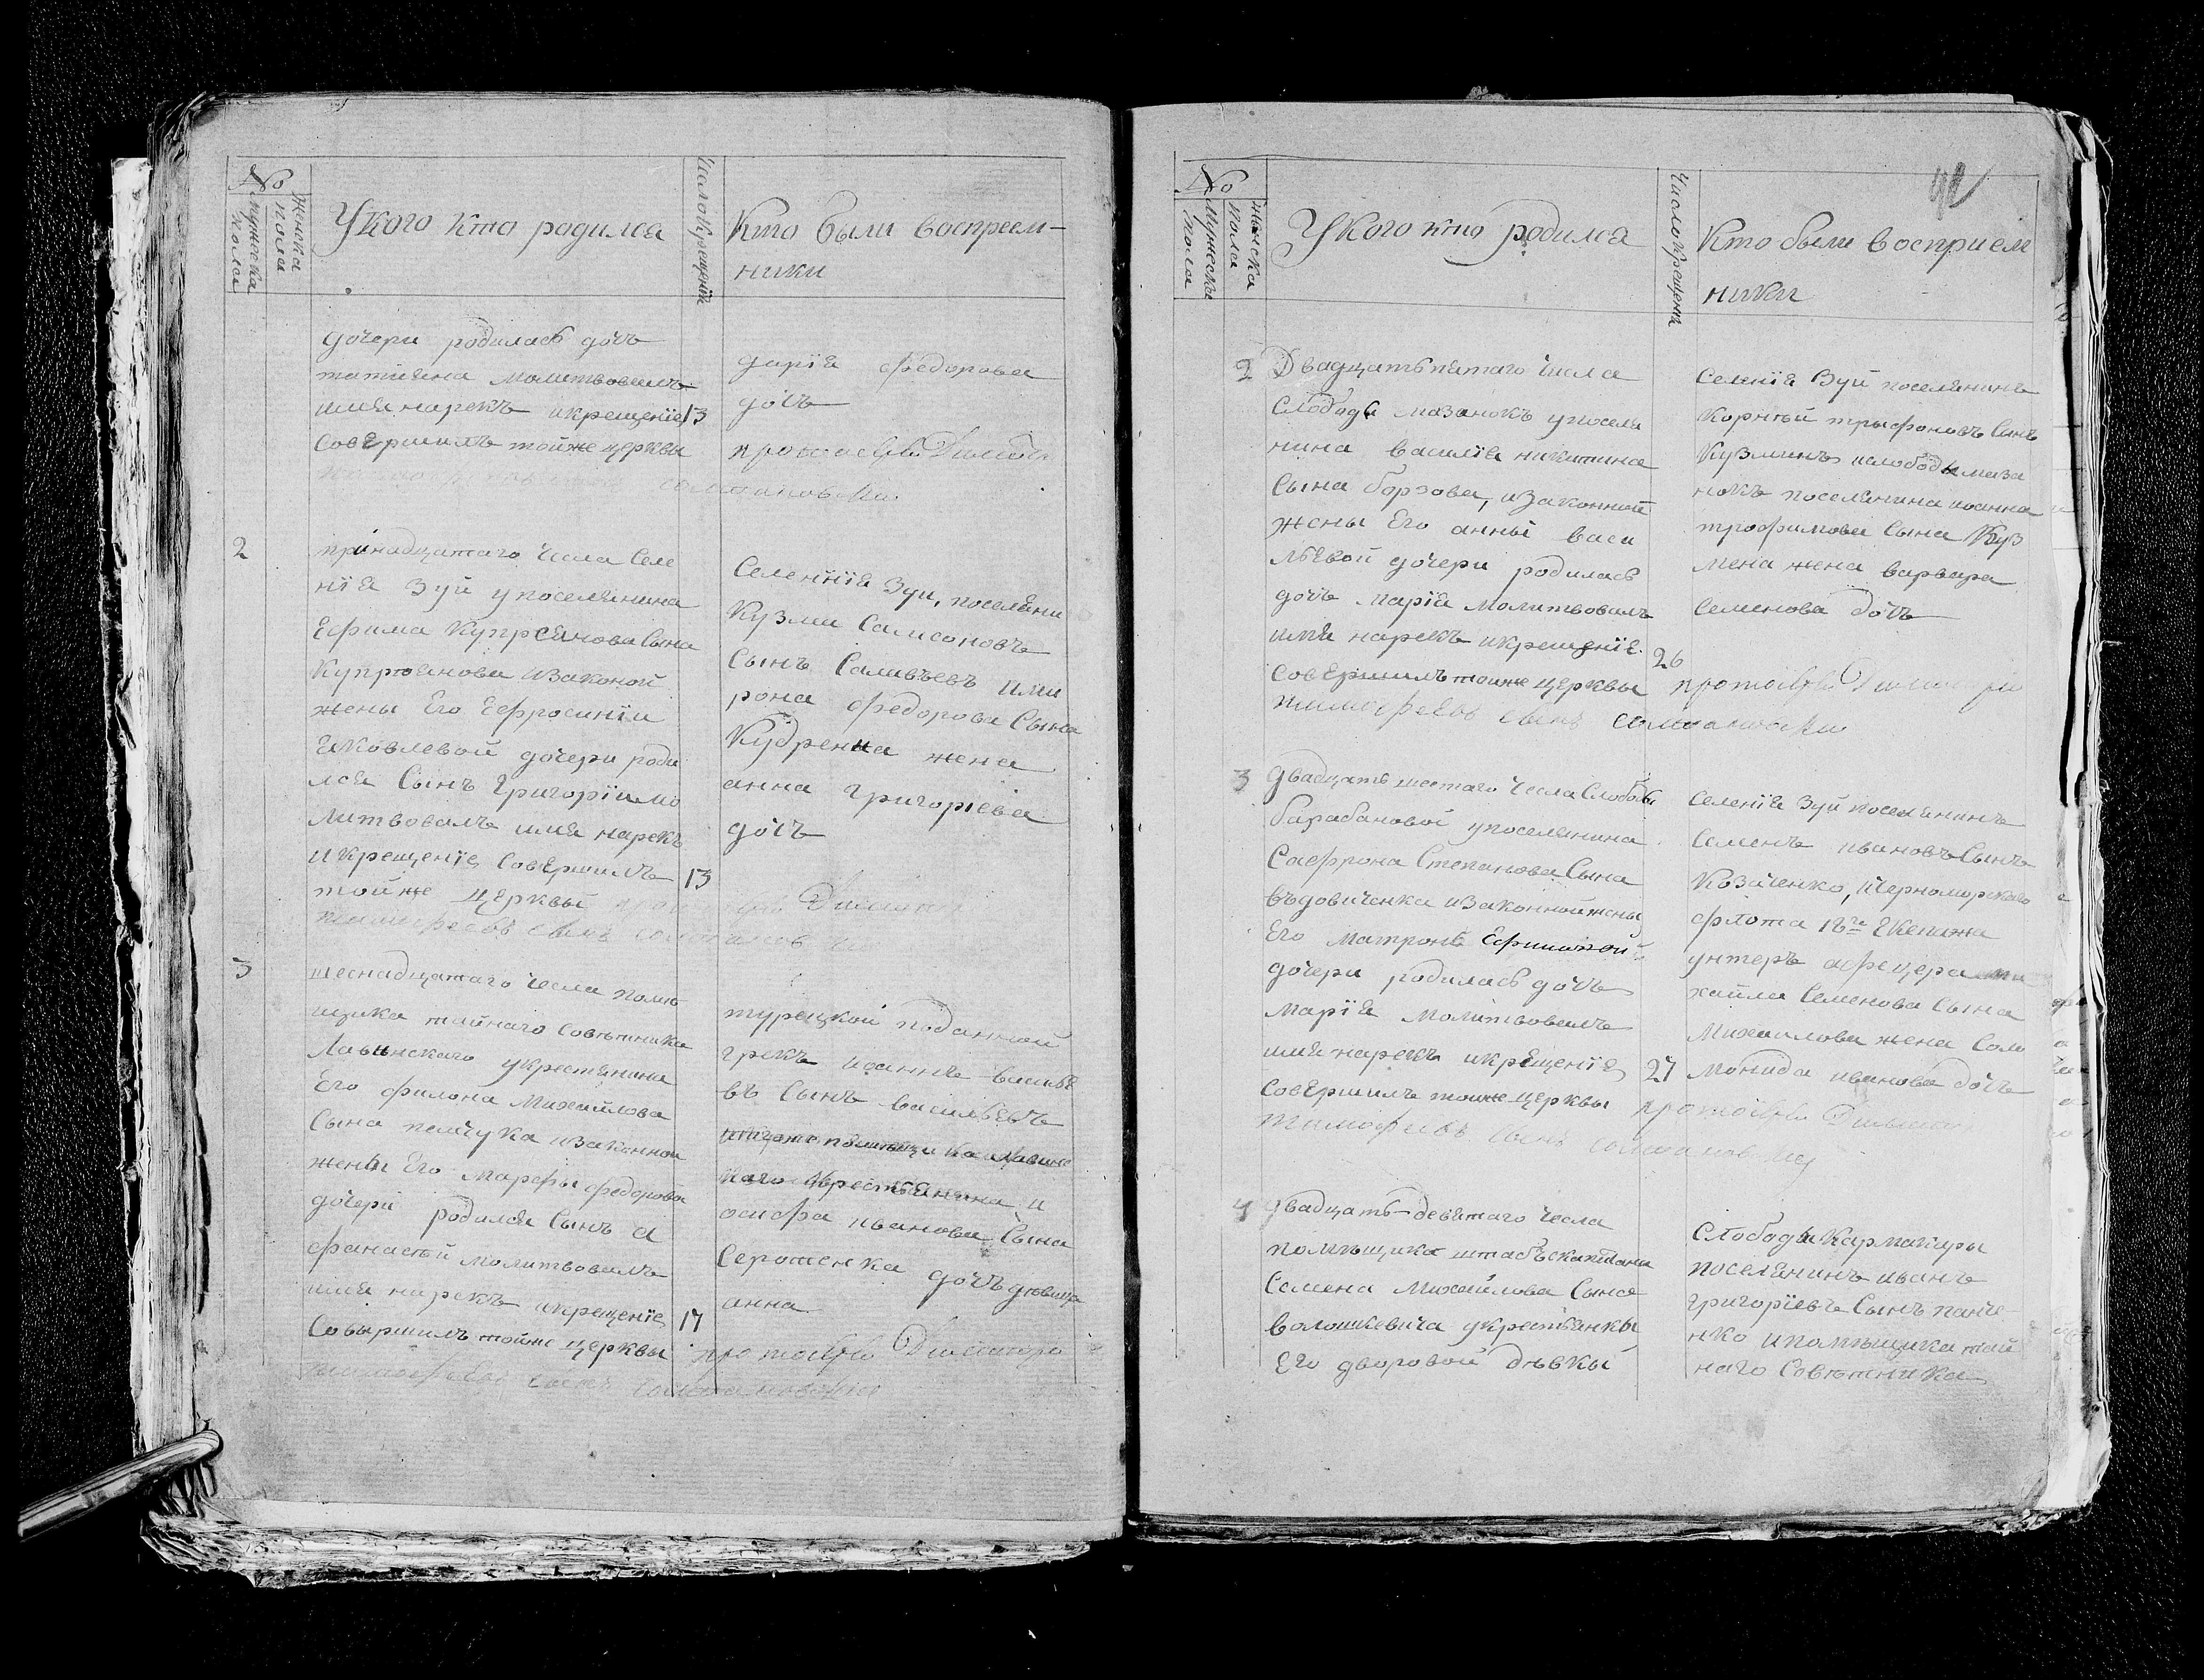 №
Мужеска пола
Женска пола
У кого кто родился
Число крещенїи
Кто были воспреем-
ники
дочери родилась дочь
татияна молитвовалъ
имя нарекъ и крещенїе 13
совершилъ тойже церквы
дарїя федорова
дочь
протоїерей Димитрїй
2
тринадцатаго числа селе
нїя Зуй у поселянина
Ефима Купреянова сына
Купреянова и законой
жены Его Ефросинїи
Яковлевой дочери роди
лся сынъ Григорїи мо
литвовалъ имя нарекъ
и крещенїе совершилъ 13
тойже церквы
тимофеевъ сынъ
Селенїя Зуи, поселяни
Кузма Самсоновъ
сынъ Савивъевъ и ми
рона федорова сына
Кудренка жена
анна григорїева
дочь
3
шеснадцатаго числа помѣ
щика тайнаго совѣтника
Лавинскаго у крестянина
Его филона Михайлова
сына пемчука и законной
жены Его Марфы федорова
дочери родился сынъ а
фанасїй молитвовалъ
имя нарекъ и крещенїе 17
совыршилъ тойже церквы
турецкой поданной
грекъ иоанне василье
въ сынъ васильевъ
и
осифа иванова сына
Серотенка дочь дѣвица
анна
протоїерей Димитрїи
тимофеевъ сынъ
№
Мужеска пола
Женска пола
У кого кто родился
Число крещенїи
Кто были восприем
ники
2
Двадцать пятаго числа
Слободы мазанокъ у поселя
нина василїя никитина
сына борзова, и законной
жены Его анны васи
льевой дочери родилась
дочь марїя молитвовалъ
имя нарекъ и крещенїе 26
совершилъ тойже церквы
Селенїя Зуй поселянинъ
Корнѣй трыфоновъ сынъ
Кузминъ и слободы маза
нокъ поселянина иоанна
трофимова сына Куз
мена жена варвара
семенова дочь
протоїерей Димитрїй
тимофеевъ сынъ
3
двадцать шестаго числа слободы
барабановой у поселянина
Сафрона Степанова сына
въдовиченка и законной жены
Его матроны Ефимовой
дочери родилась дочь
марїя молитвовалъ
имя нарекъ и крещенїе 27
совершилъ тойже церквы
Селенїя Зуй поселянинъ
Семенъ ивановъ сынъ
Козаченко, и черноморскаго
флота 18го Екепажа
унтеръ афецера ми
хаила Семенова сына
Михаилова жена соло
монида иванова дочь
протоїерей Димитрїй
тимофеевъ сынъ
4
двадцать девятаго числа
помѣщика штабъскапитана
Семена Михайлова сына
волошкевича у крестьянкы
Его дворовой дѣвкы
Слободы Кармакары
поселянинъ иванъ
григорїевъ сынъ панче
нко и помѣщика тай
наго совѣтника